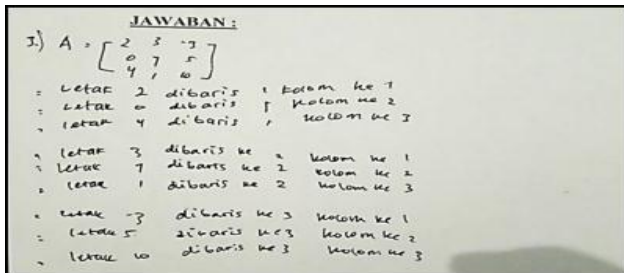 JAWABAN :
3.) A = [ 2 3 -3
0 7 5
4 1 10 ]
= Letak 2 dibaris 1 kolom ke 1
= Letak 0 dibaris 1 kolom ke 2
= letak 4 dibaris 1 kolom ke 3
= letak 3 dibaris ke 2 kolom ke 1
= Letak 7 dibaris ke 2 kolom ke 2
= letak 1 dibaris ke 2 kolom ke 3
= Letak -3 dibaris ke 3 kolom ke 1
= letak 5 dibaris ke 3 kolom ke 2
= letak 10 dibaris ke 3 kolom ke 3